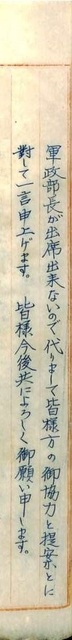 軍政部長が出席出来ないので代りまして皆様方の御協力と提案とに
対して一言申上げます。 皆様今後共によろしく御願い申します。